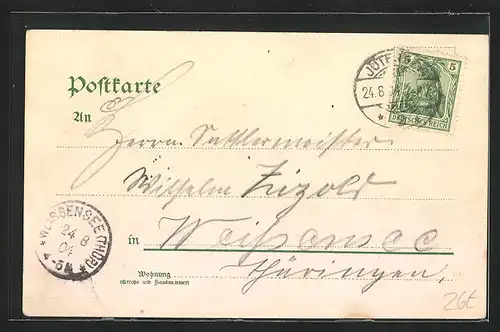 Postkarte
An
Herrn Sattlermeister
Wilhelm Zigold
in Weißensee
Thüringen.
Wohnung
(Straße und Hausnummer)
5 5
DEUTSCHES REICH
24.8
WEISSENSEE (THÜR)
24 8
04
26t